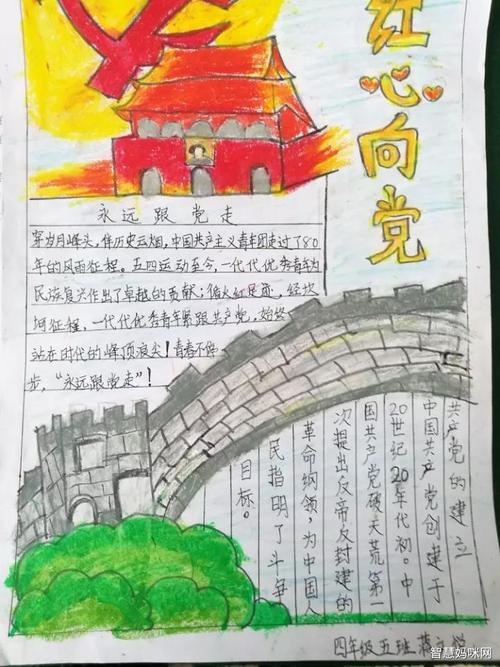 红心向党
永远跟党走
穿岁月峰头,伴历史云烟,中国共产主义青年团走过了80
年的风雨征程。五四运动至今,一代代优秀青年为
民族复兴作出了卓越的贡献;循火红足迹,经坎
坷征程,一代代优秀青年紧跟共产党,始终
站在时代的峰顶浪尖!青春不停
步,“永远跟党走”!
共产党的建立
中国共产党创建于
20世纪20年代初。中
国共产党破天荒第一
次提出反帝反封建的
革命纲领,为中国人
民指明了斗争
目标。
四年级五班
智慧妈咪网